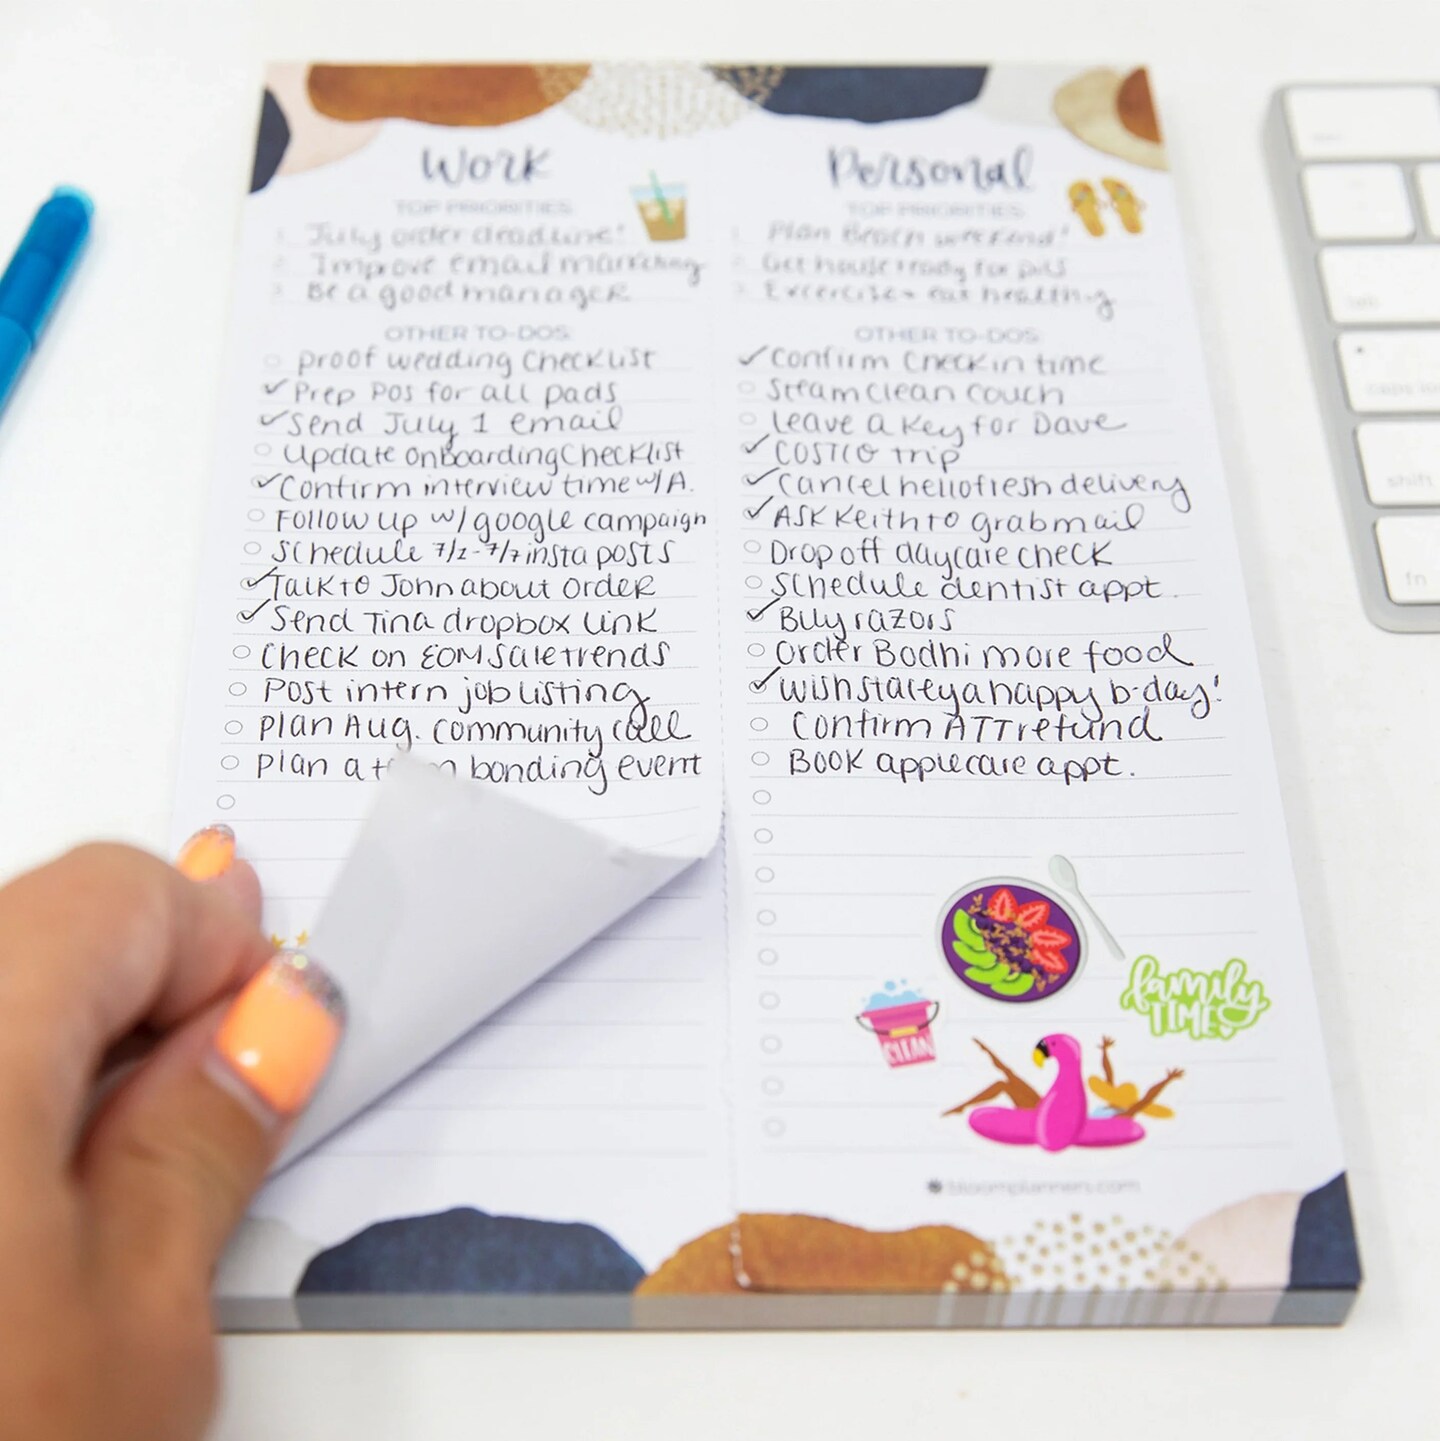 Work
TOP PRIORITIES
1. July order deadline!
2. Improve email marketing
3. Be a good manager
OTHER TO-DOS:
proof wedding checklist
Prep POs for all pads
Send July 1 email
update onboarding checklist
Confirm interview time w/A.
Follow up w/ google campaign
Schedule 7/1-7/7 insta posts
Talk to John about order
Send Tina dropbox link
Check on EOM sale trends
Post intern job listing
plan Aug. community call
plan a bonding event
Personal
TOP PRIORITIES
1. Plan Beach weekend!
2. Get house ready for
3. Excercise + eat healthy
OTHER TO-DOS:
Confirm Check in time
Steam clean couch
leave a key for Dave
COSTCO trip
Cancel hellofresh delivery
ASK Keith to grab mail
Drop off daycare check
Schedule dentist appt.
Buy razors
Order Bodhi more food
wish stacey a happy b-day!
Confirm ATT refund
Book applecare appt.
family
TIME
CLEAN
bloomplanners.com
shift
fn